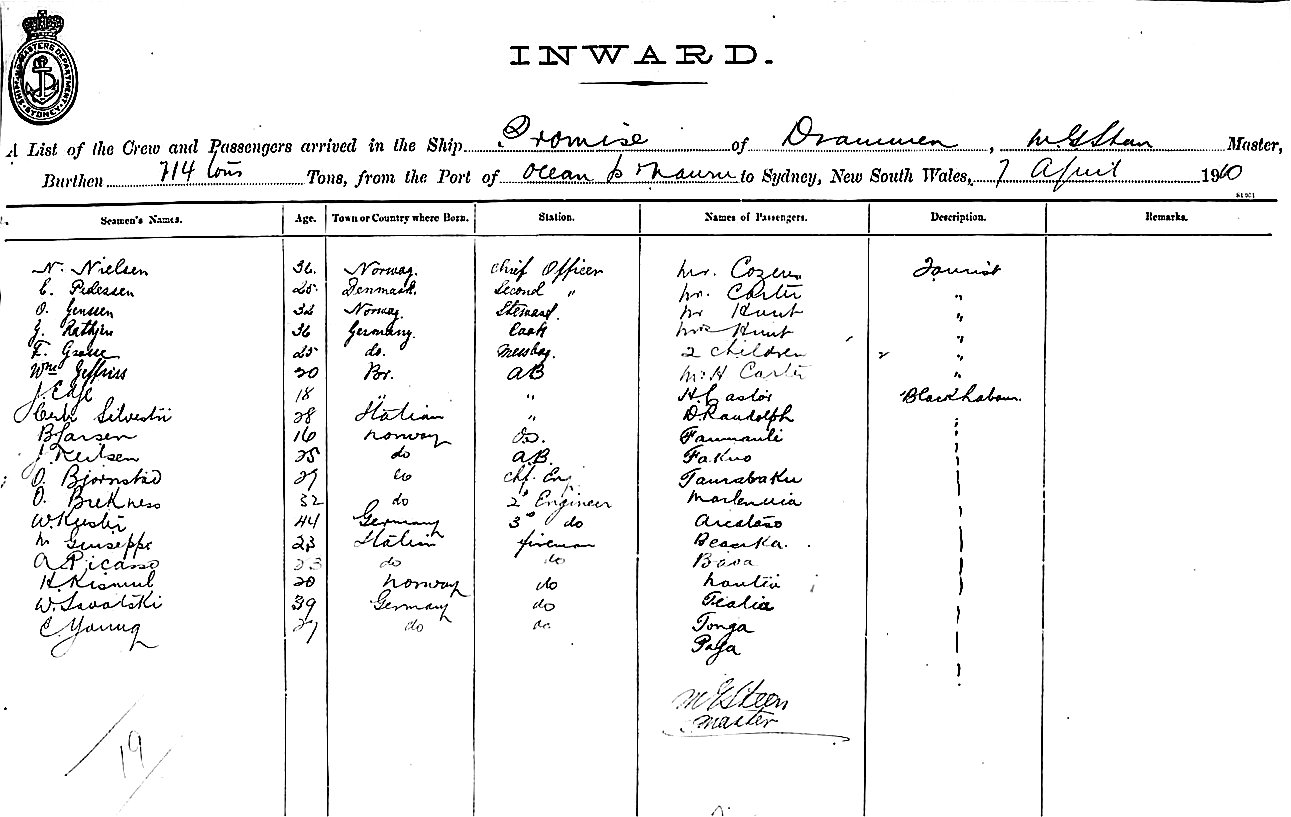 SHIPPING MASTERS DEPARTMENT SYDNEY
INWARD.
A List of the Crew and Passengers arrived in the Ship Promise of Drammen, M G Steen Master,
Burthen 714 tons Tons, from the Port of Ocean & Nauru to Sydney, New South Wales, 7 April 1910
Seamen's Names. Age. Town or Country where Born. Station. Names of Passengers. Description. Remarks.
N. Nielsen 36. Norway. Chief Officer Mr. Cozens Tourist
E. Pedessen 25 Denmark. Second " Mr. Carter "
O. Jenssen 32 Norway. Steward. Mr Hunt "
G. Rathjen 36 Germany. Cook Mrs Hunt "
F. 25 do. Messboy. 2 Children "
Wm Jeffriss 20 Br. AB Mr H Carter "
J. Edge 18 " " H. Castor Black labour.
Silvestri 28 Italian " D. Randolph "
B Larsen 16 Norway O.S. "
J. Neilsen 25 do AB. Fakuo "
O. Bjornstad 27 do Chf. Eng Taurabaku "
O. Brekness 32 do 2d Engineer "
W. Kuster 44 Germany 3rd do "
M Giuseppe 23 Italian fireman "
A. Picasso 23 do do Bava "
H. Kismul 20 Norway do "
W. Savatski 39 Germany do "
C. Young 27 do do Tonga "
Paga "
M G Steen
Master
19